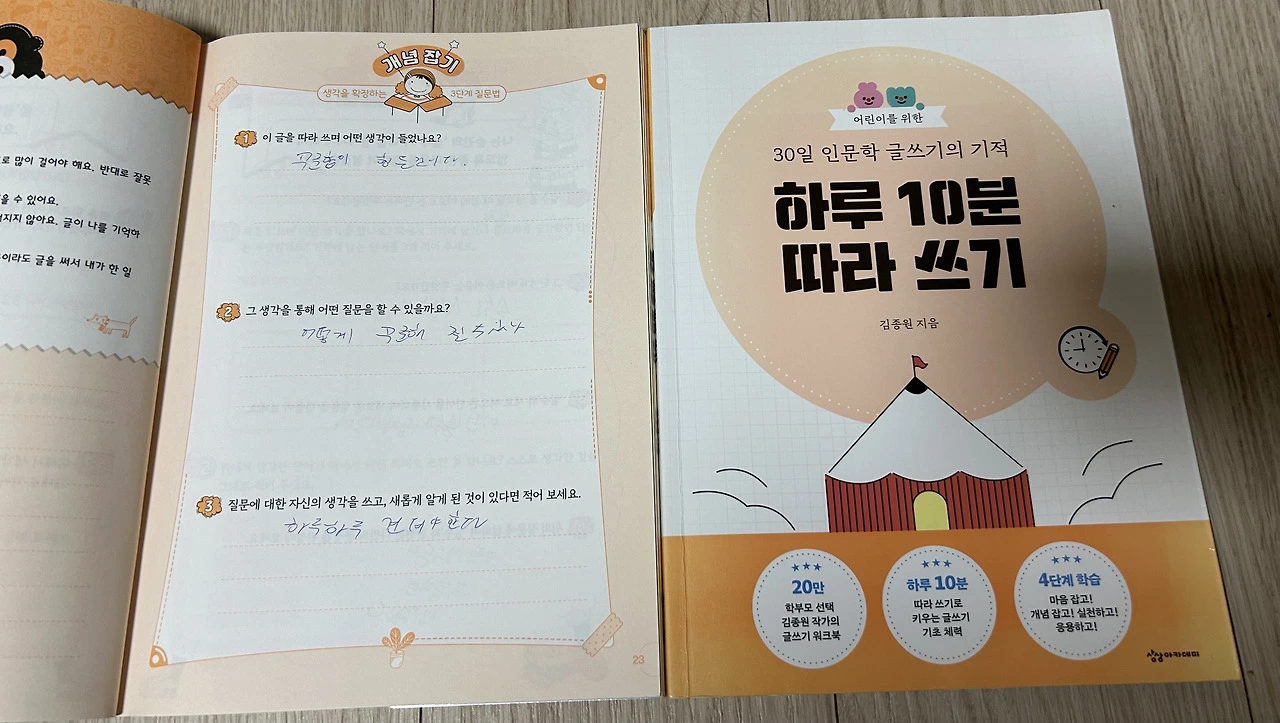 로 많이 걸어야 해요. 반대로 잘못
을 수 있어요.
지지 않아요. 글이 나를 기억하
이라도 글을 써서 내가 한 일
개념 잡기
생각을 확장하는 3단계 질문법
1 이 글을 따라 쓰며 어떤 생각이 들었나요?
꾸준함이 힘들
2 그 생각을 통해 어떤 질문을 할 수 있을까요?
어떻게 꾸준해 질 수 있나
3 질문에 대한 자신의 생각을 쓰고, 새롭게 알게 된 것이 있다면 적어 보세요.
하루하루
23
어린이를 위한
30일 인문학 글쓰기의 기적
하루 10분
따라 쓰기
김종원 지음
20만
학부모 선택
김종원 작가의
글쓰기 워크북
하루 10분
따라 쓰기로
키우는 글쓰기
기초 체력
4단계 학습
마음 잡고!
개념 잡고! 실천하고!
응용하고!
상상아카데미